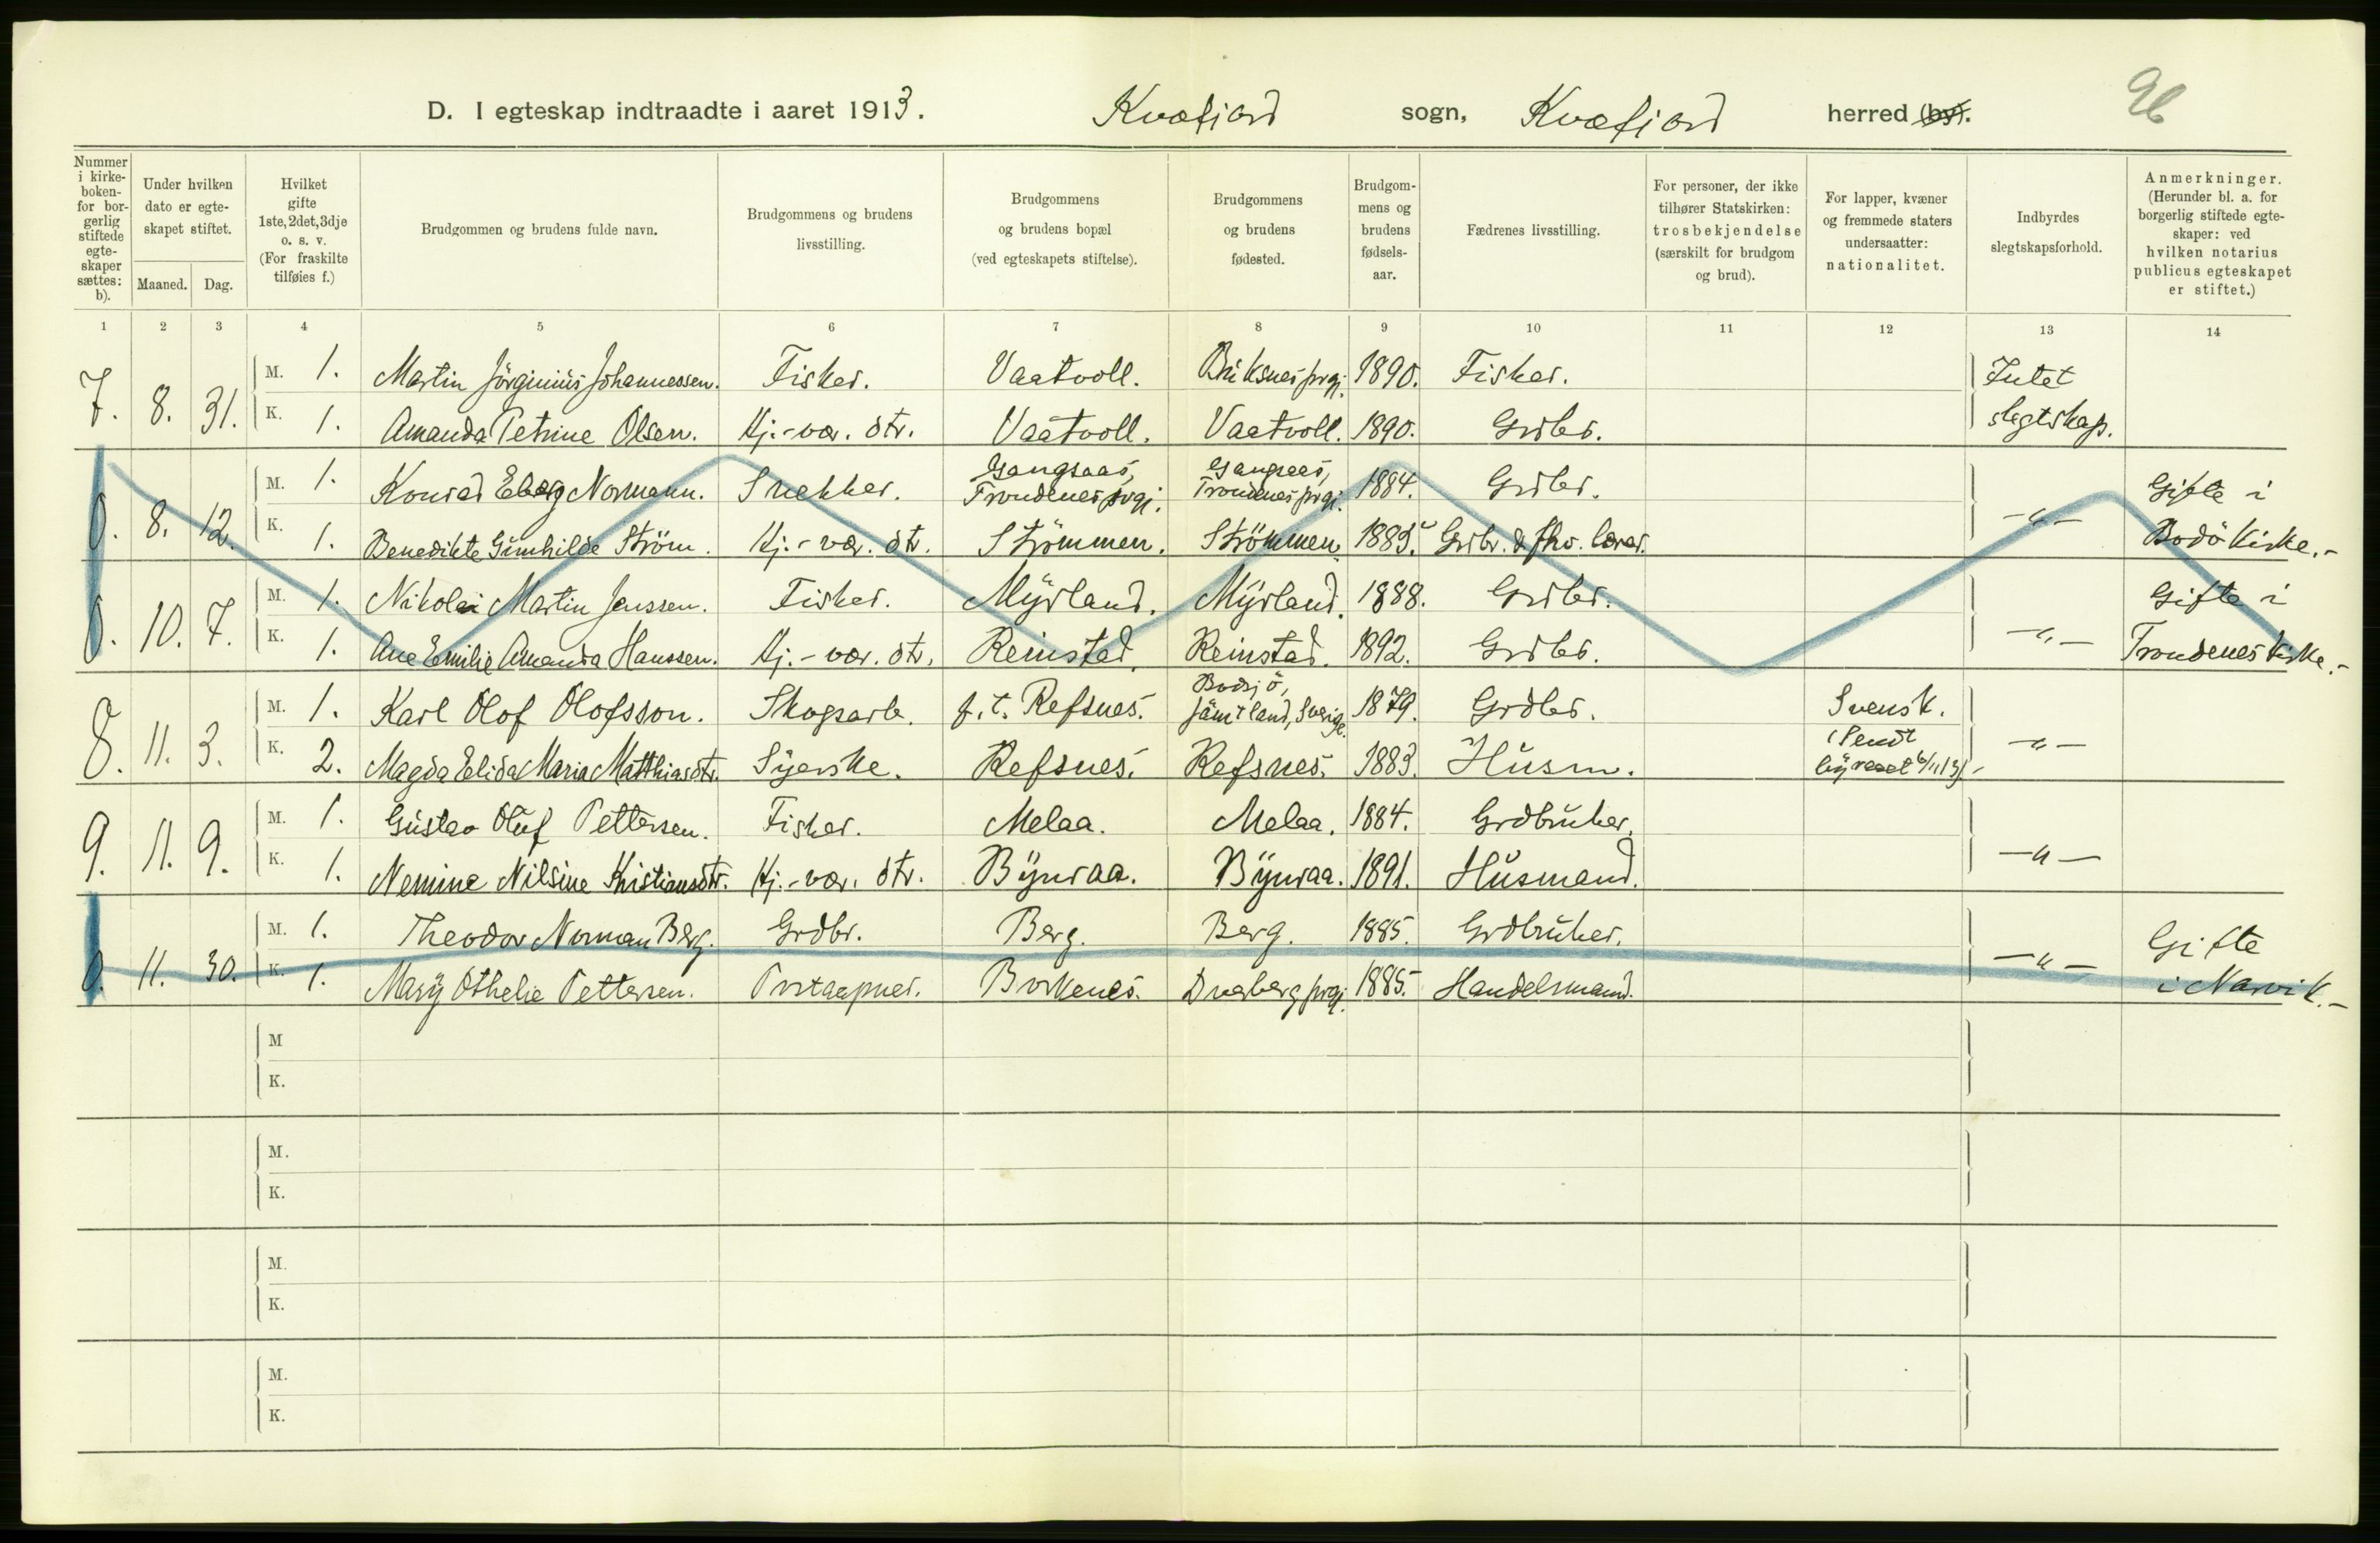 D. I egteskap indtraadte i aaret 1913. Kvæfjord sogn, Kvæfjord herred (by).
Nummer i kirke-boken- for bor-gerlig stiftede egte-skaper sættes: b).
Under hvilken dato er egte-skapet stiftet.
Maaned. Dag.
Hvilket gifte 1ste, 2det, 3dje o. s. v. (For fraskilte tilføies f.)
Brudgommen og brudens fulde navn.
Brudgommens og brudens livsstilling.
Brudgommens og brudens bopæl (ved egteskapets stiftelse).
Brudgommens og brudens fødested.
Brudgom-mens og brudens fødsels-aar.
Fædrenes livsstilling.
For personer, der ikke tilhører Statskirken: trosbekjendelse (særskilt for brudgom og brud).
For lapper, kvæner og fremmede staters undersaatter: nationalitet.
Indbyrdes slegtskapsforhold.
Anmerkninger. (Herunder bl. a. for borgerlig stiftede egte-skaper: ved hvilken notarius publicus egteskapet er stiftet.)
1 2 3 4 5 6 7 8 9 10 11 12 13 14
7. 8. 31. M. 1. Martin Jörginius Johannessen. Fisker. Vaatvoll. prgj. 1890. Fisker. Intet
K. 1. Amanda Petrine Olsen. Hj.-vær. dtr. Vaatvoll. Vaatvoll. 1890. Grdbr. slegtskap.
0. 8. 12. M. 1. Konrad Normann. Snekker. Gangsaas, Trondenes prgj. Gangsaas, Trondenes prgj. 1884. Grdbr. -"- Gifte i
K. 1. Benedikte Gunhilde Ström. Hj.-vær. dtr. Strömmen. Strömmen. Grdbr. & lærer. Bodö kirke.-
0. 10. 7. M. 1. Nikolai Martin Jenssen. Fisker. Myrland. Myrland. 1888. Grdbr. -"- Gifte i
K. 1. Ane Emilie Amanda Hanssen. Hj.-vær. dtr. Reinstad. Reinstad. 1892. Grdbr. Trondenes kirke.-
8. 11. 3. M. 1. Karl Olof Olofsson. Skogsarb. f.t. Refsnes. Bodsjö, Jämtland, Sverige. 1879. Grdbr. Svensk. -"-
K. 2. Magda Elida Maria Matthiasdtr. Syerske. Refsnes. Refsnes. 1883. Husm. (Sendt
9. 11. 9. M. 1. Gustav Oluf Pettersen. Fisker. Melaa. Melaa. 1884. Grdbruker. -"-
K. 1. Nemine Nilsine Kristiansdtr. Hj.-vær. dtr. Bynraa. Bynraa. 1891. Husmand.
0. 11. 30. M. 1. Theodor Norman Berg. Grdbr. Berg. Berg. 1885. Grdbruker. -"- Gifte
K. 1. Mary Othelie Pettersen. Postaapner. Borkenes. Dverberg prgj. 1885. Handelsmand. i Narvik.-
M
K.
M.
K.
M.
K.
M.
K.